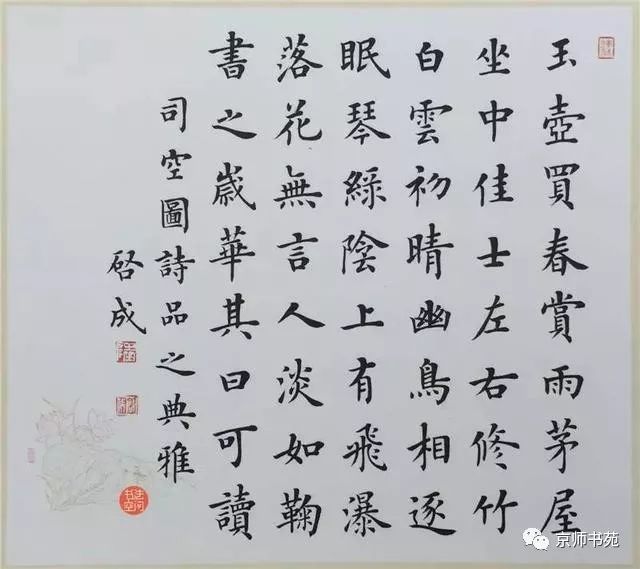 玉壺買春賞雨茅屋
坐中佳士左右修竹
白雲初晴幽鳥相逐
眠琴綠陰上有飛瀑
落花無言人淡如菊
書之嵗華其曰可讀
司空圖詩品之典雅
啓成
京师书苑